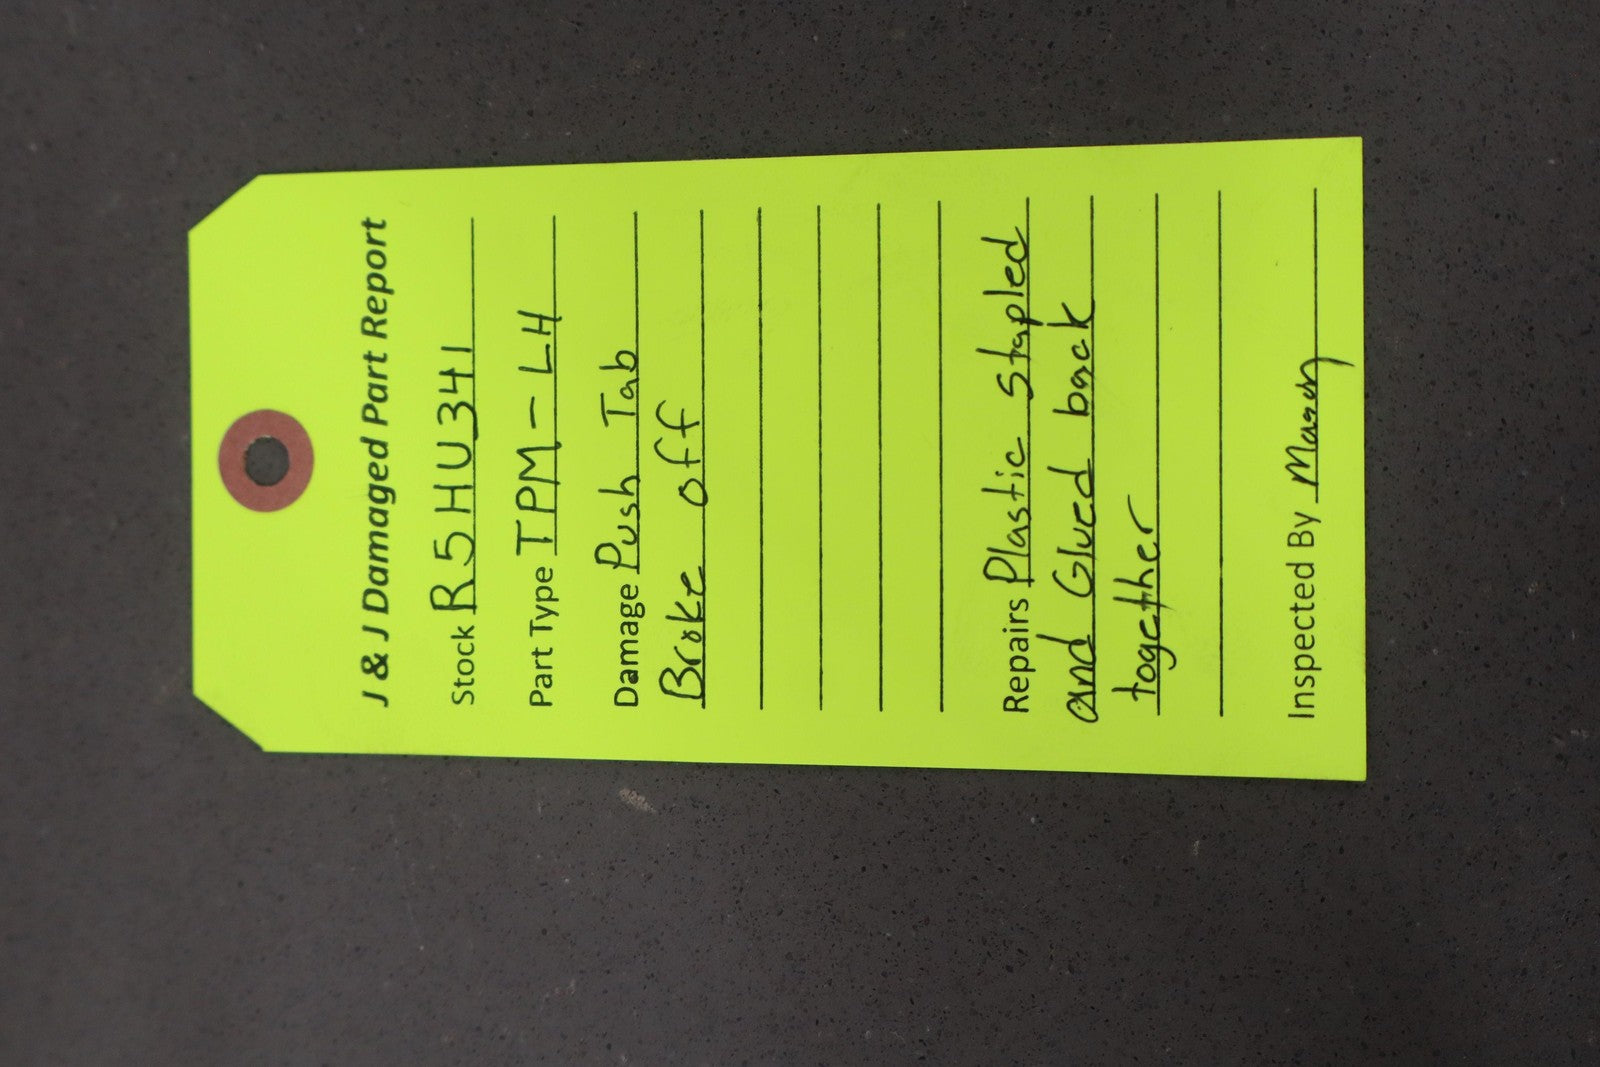 J & J Damaged Part Report
Stock R5HU341
Part Type TPM-LH
Damage Push Tab
Broke off
Repairs Plastic stapled
and Glued back
together
Inspected By